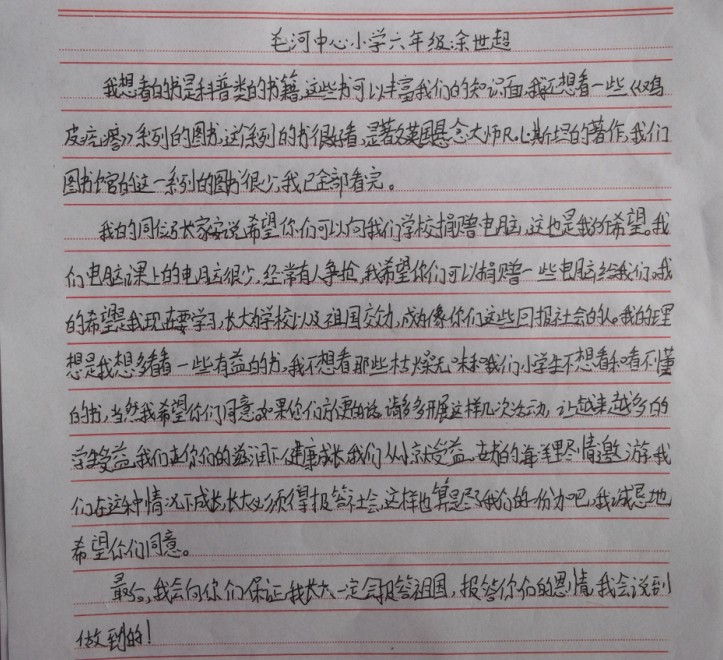 毛河中心小学六年级涂世超
我想看的书是科普类的书籍,这些书可以丰富我们的知识面,我还想看一些《鸡
皮疙瘩》系列的图书,这系列的书很好看,是著名英国悬念大师R.L斯坦的著作,我们
图书馆的这一系列的图书很少,我已全部看完。
我的同位张家安说希望你们可以向我们学校捐赠电脑,这也是我的希望。我
们电脑课上的电脑很少,经常有人争抢,我希望你们可以捐赠一些电脑给我们。我
的希望是我现在要学习,长大为学校以及祖国效力,成为像你们这些回报社会的人。我的理
想是我想多看看一些有益的书,我不想看那些枯燥无味和我们小学生不想看和看不懂
的书,当然我希望你们同意。如果你们方便的话,请多多开展这样几次活动,让越来越多的
学生受益。我们在你们的滋润下健康成长,我们从小就受益,在书的海洋里尽情遨游,我
们在这种情况下成长,长大必须得报答社会,这样也算是尽了我们的一份力吧,我诚恳地
希望你们同意。
最后,我会向你们保证我长大一定会报答祖国,报答你们的恩情,我会说到
做到的!